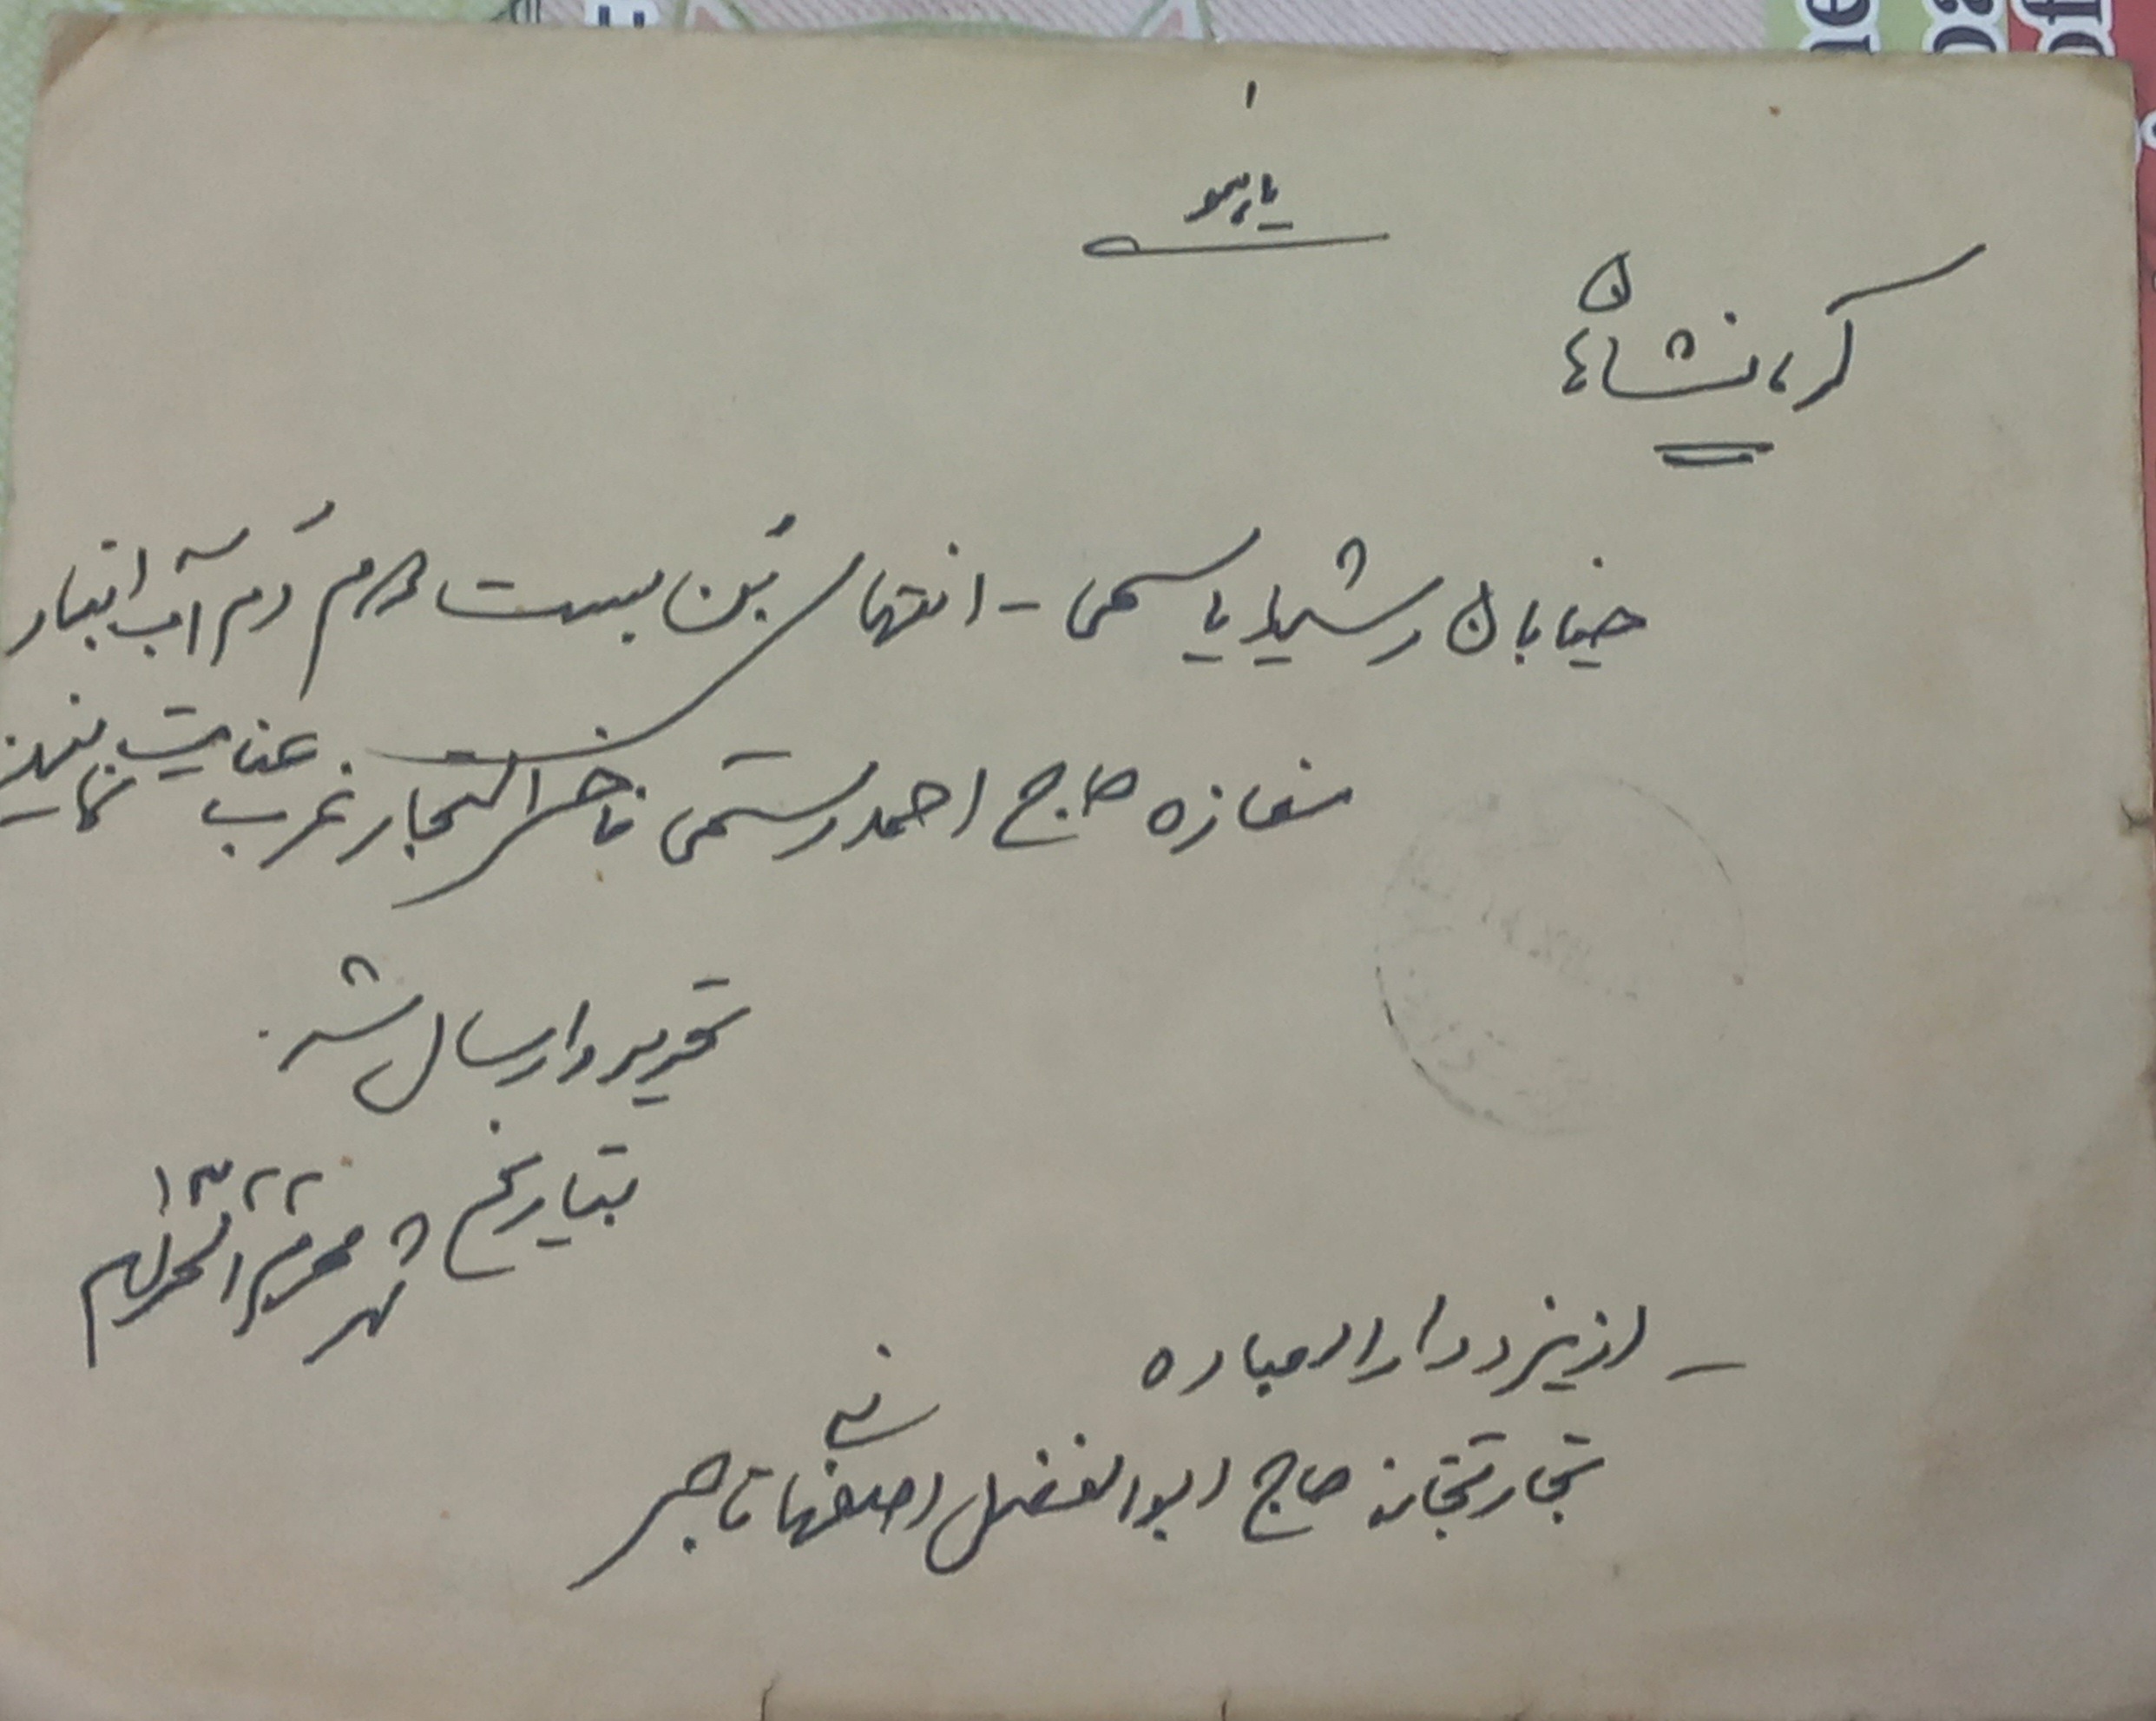 یا هو
کرمانشاهان
خیابان رشید یاسمی - انتهای بُن بست دوم دُم آب انبار
مغازه حاج احمد رستمی فاخر التجار غرب عنایت فرمایند
تحریر و ارسال شد.
بتاریخ شهر محرم الحرام ۱۳۲۲
- از یزد دارالعباده
تجارتخانه حاج ابوالفضل اصفهانی تاجر